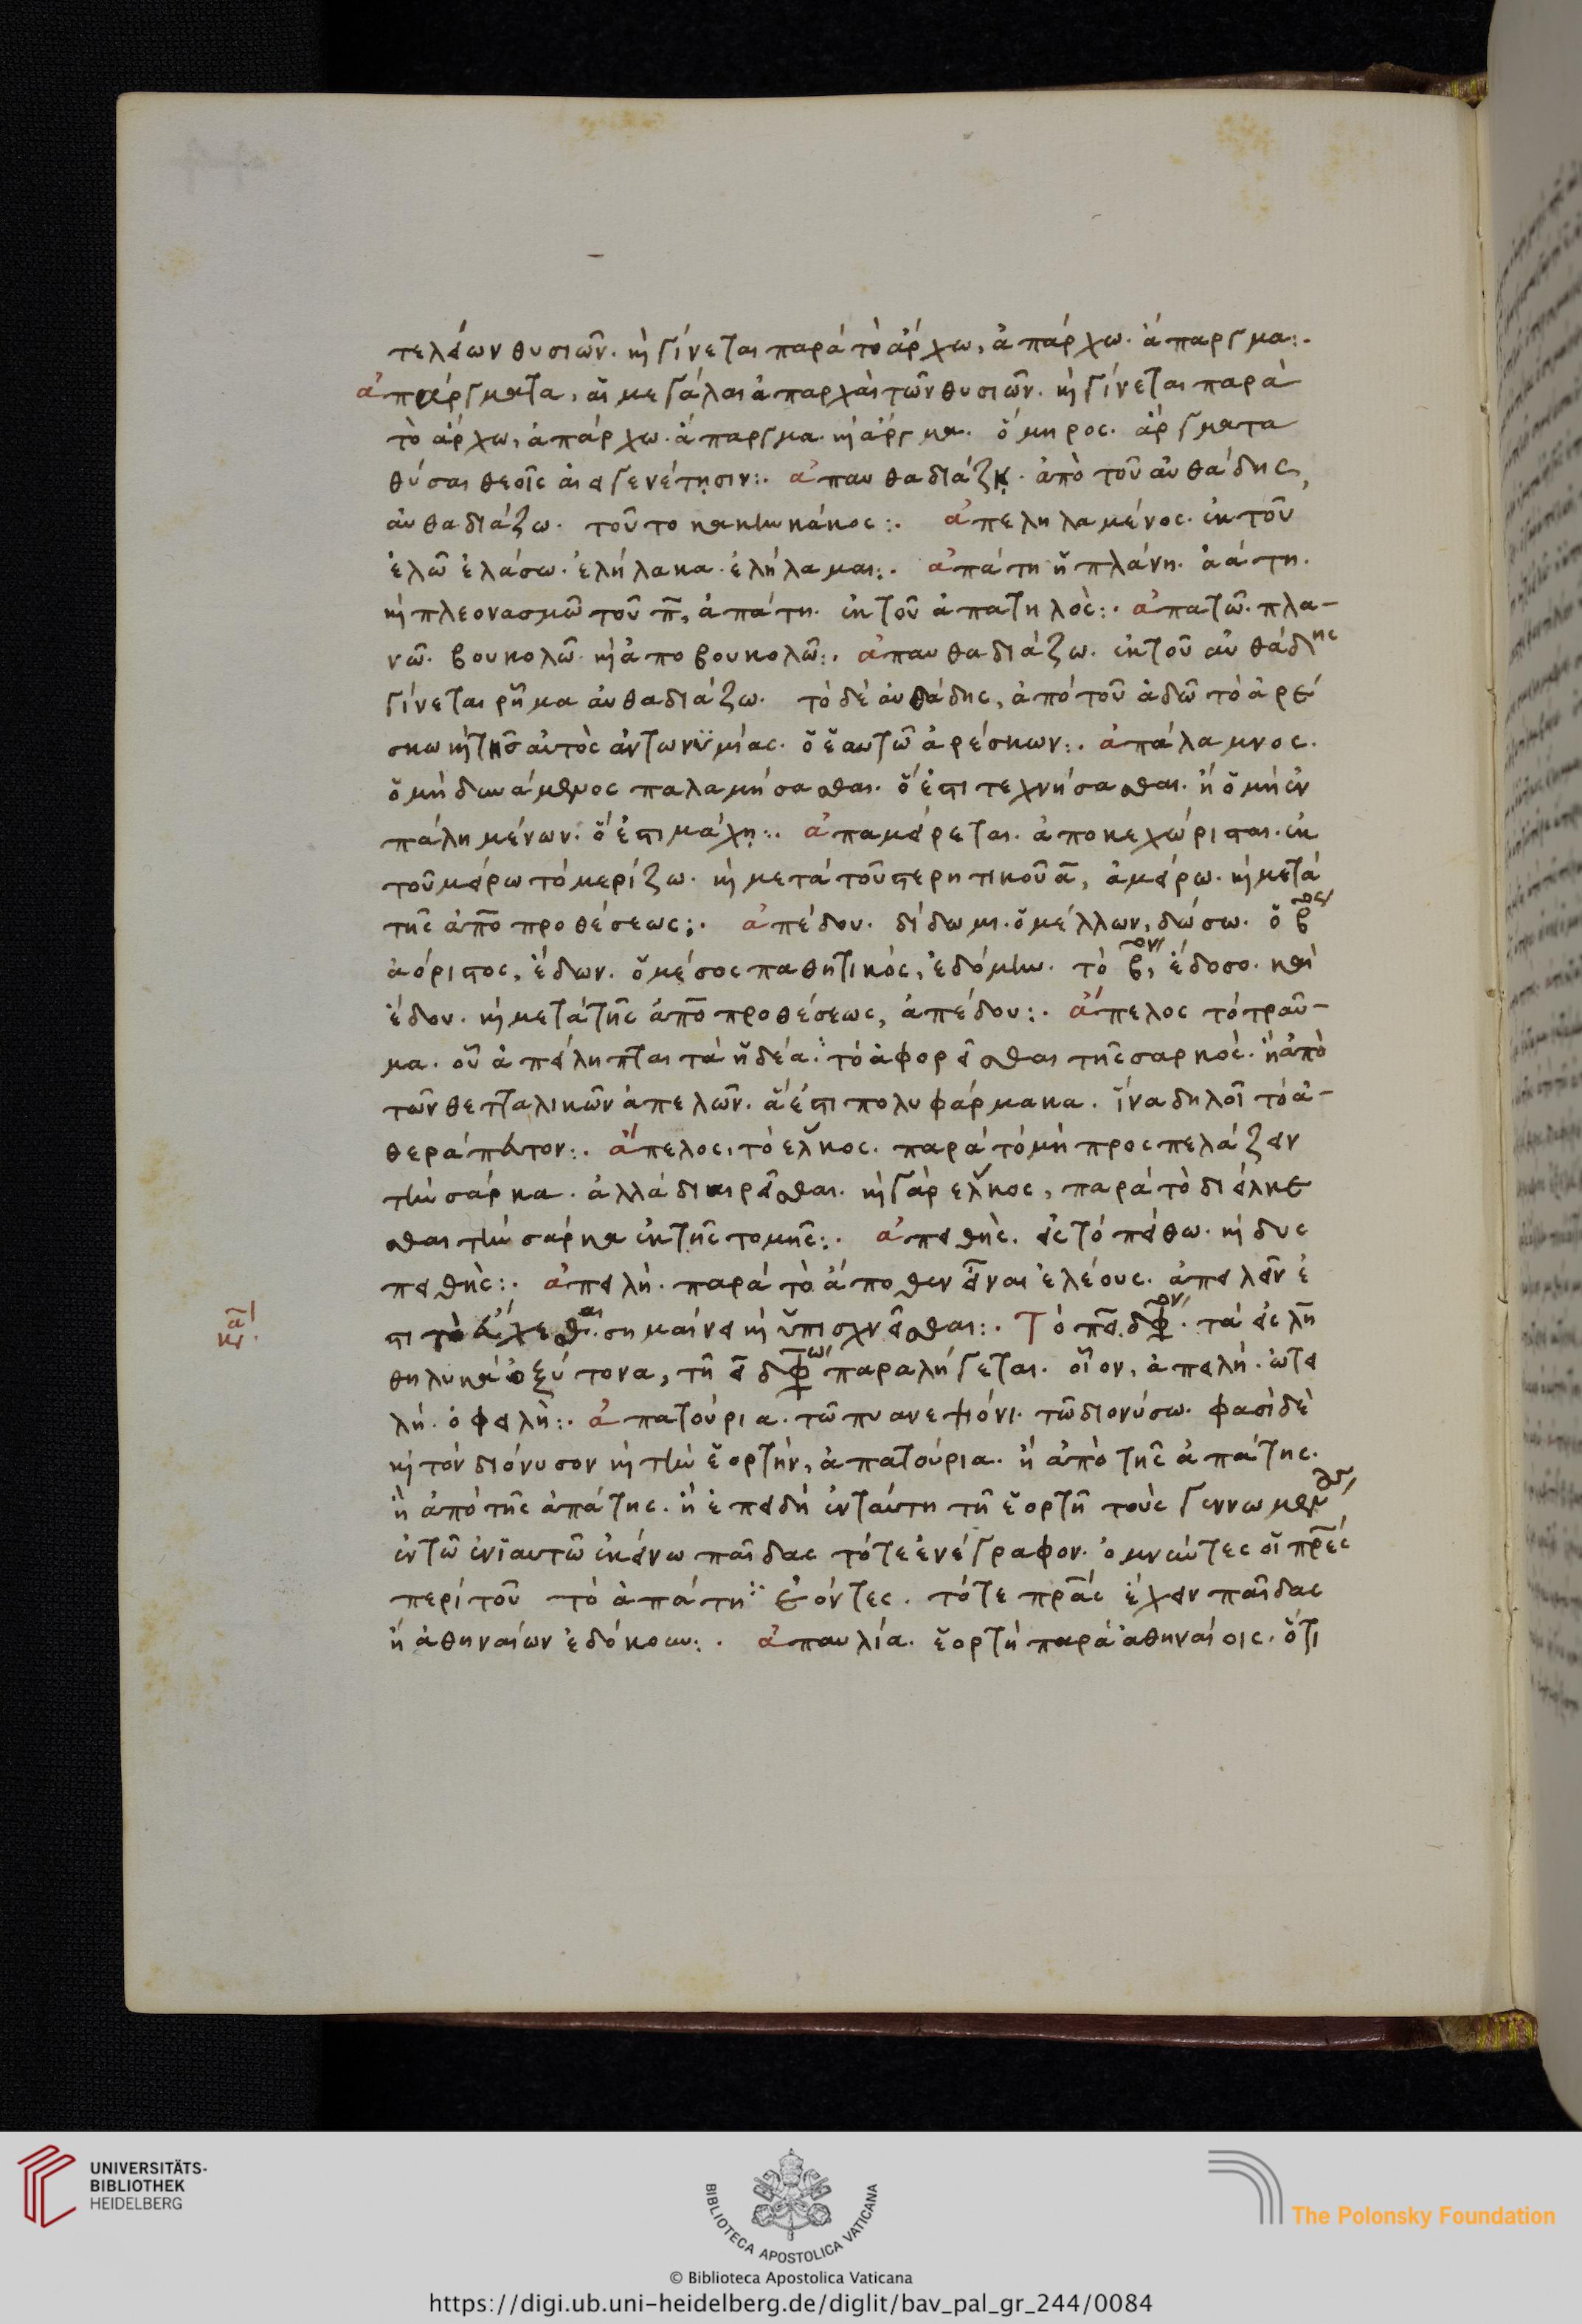 τελείων θυσιῶν. κὶ γίνεται παρὰ τὸ ἄρχω, ἀπάρχω. ἄπαργμα:.
ἀπάργματα, αἱ μεγάλαι ἀπαρχαὶ τῶν θυσιῶν. κὶ γίνεται παρὰ
τὸ ἄρχω, ἀπάρχω. ἄπαργμα. κὶ ἄργμα. ὅμηρος. ἄργματα
θύσαι θεοῖς αἰειγενέτῃσιν:. ἀπαυθαδιάζ. ἀπὸ τοῦ αὐθάδης,
αὐθαδιάζω. τοῦτο κακὴν κάκος:. ἀπεληλαμένος. ἐκ τοῦ
ἐλῶ ἐλάσω. ἐλήλακα. ἐλήλαμαι:. ἀπάτη ἡ πλάνη. ἀάτη.
κὶ πλεονασμῶ τοῦ π̄, ἀπάτη. ἐκ τοῦ ἀπατηλὸς:. ἀπατῶ. πλα-
νῶ. βουκολῶ. κὶ ἀποβουκολῶ:. ἀπαυθαδιάζω. ἐκ τοῦ αὐθάδης
γίνεται ῥῆμα αὐθαδιάζω. τὸ δὲ αὐθάδης, ἀπὸ τοῦ ἁδῶ τὸ ἀρέ
σκω κὶ τῆς αὐτὸς ἀντωνυμίας. ὁ ἑαυτῶ ἀρέσκων:. ἀπάλαμνος.
ὁ μὴ δυνάμενος παλαμήσασθαι. ὅ ἐστι τεχνήσασθαι. ἢ ὁ μὴ ἐν
πάλη μένων. ὅ ἐστι μάχῃ:. ἀπαμείρεται. ἀποκεχώρισται. ἐκ
τοῦ μείρω τὸ μερίζω. κὶ μετὰ τοῦ στερητικοῦ ᾱ, ἀμείρω. κὶ μετὰ
τῆς ἀπο προθέσεως:. ἀπέδου. δίδωμι. ὁ μέλλων, δώσω. ὁ β̄ος
ἀόριστος, ἔδων. ὁ μέσος παθητικός, ἐδόμην. τὸ β̄ον, ἔδοσο. καὶ
ἔδου. κὶ μετὰ τῆς ἀπο προθέσεως, ἀπέδου:. ἄπελος τὸ τραῦ-
μα. οὗ ἀπείληπται τὰ ἡδέα. τὸ ἀφορεῖσθαι τῆς σαρκὸς. ἢ ἀπὸ
τῶν θετταλικῶν ἀπελῶν. ἅ ἐστι πολυφάρμακα. ἵνα δηλοῖ τὸ ἀ-
θεράπευτον:. ἄπελος, τὸ ἕλκος. παρὰ τὸ μὴ προςπελάζειν
τὴν σάρκα. ἀλλὰ διαιρεῖσθαι. κὶ γὰρ ἕλκος, παρὰ τὸ διέλκε
σθαι τὴν σάρκα ἐκ τῆς τομῆς:. ἀπειθὴς. εἰς τὸ πείθω. κὶ δυς
πειθὴς:. ἀπειλή. παρὰ τὸ ἄποθεν εἶναι ἐλέους. ἀπειλεῖν ἐ
στι τὸ εὔχεσθαι. σημαίνει κὶ ὑπισχνεῖσθαι:. Τὸ πει διφον. τὰ εἰς λη
θηλυκὰ ὀξύτονα, τῆ ει διφτω παραλήγεται. οἷον, ἀπειλή. ὠτει
λή. ὀφειλὴ:. ἀπατούρια. τῶ πυανεψιόνι. τῶ διονύσω. φασὶ δὲ
κὶ τὸν διόνυσον κὶ τὴν ἑορτήν, ἀπατούρια. ἢ ἀπὸ τῆς ἀπάτης.
ἢ ἀπὸ τῆς ἀπάτης. ἢ ἐπειδὴ ἐν ταύτη τῆ ἑορτῆ τοὺς γεννωμένους
ἐν τῶ ἐνϊαυτῶ ἐκείνω παῖδας τότε ἐνέγραφον. ὀμνύντες οἱ πρες
περὶ τοῦ τὸ ἀπάτη ἐόντες. τότε πρας ἔχειν παῖδας
ἢ ἀθηναίων ἐδόκουν:. ἀπαυλία. ἑορτὴ παρὰ ἀθηναίοις. ὅτι
ᾱ
κι.
UNIVERSITÄTS-
BIBLIOTHEK
HEIDELBERG
BIBLIOTECA APOSTOLICA VATICANA
The Polonsky Foundation
© Biblioteca Apostolica Vaticana
https://digi.ub.uni-heidelberg.de/diglit/bav_pal_gr_244/0084